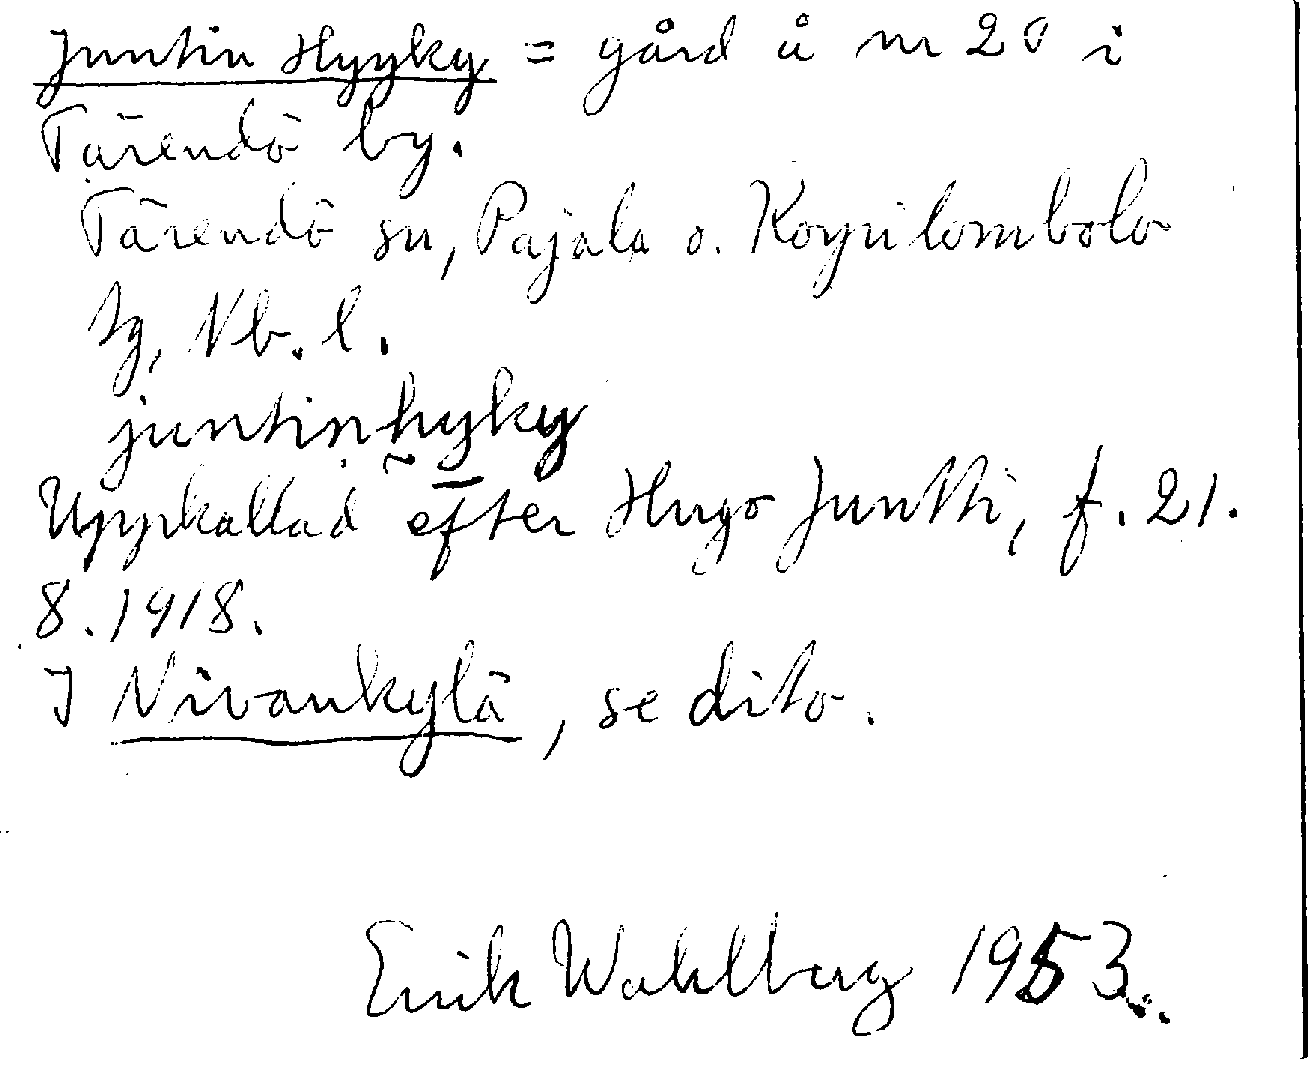 Juntin Hyyky = gård å nr 20 i
Tärendö by.
Tärendö sn, Pajala o. Korpilombolo
tg, Nb. l.
juntinhyky
Uppkallad efter Hugo Juntti, f. 21.
8. 1918.
I Nivankylä, se dito.
Erik Wahlberg 1953.